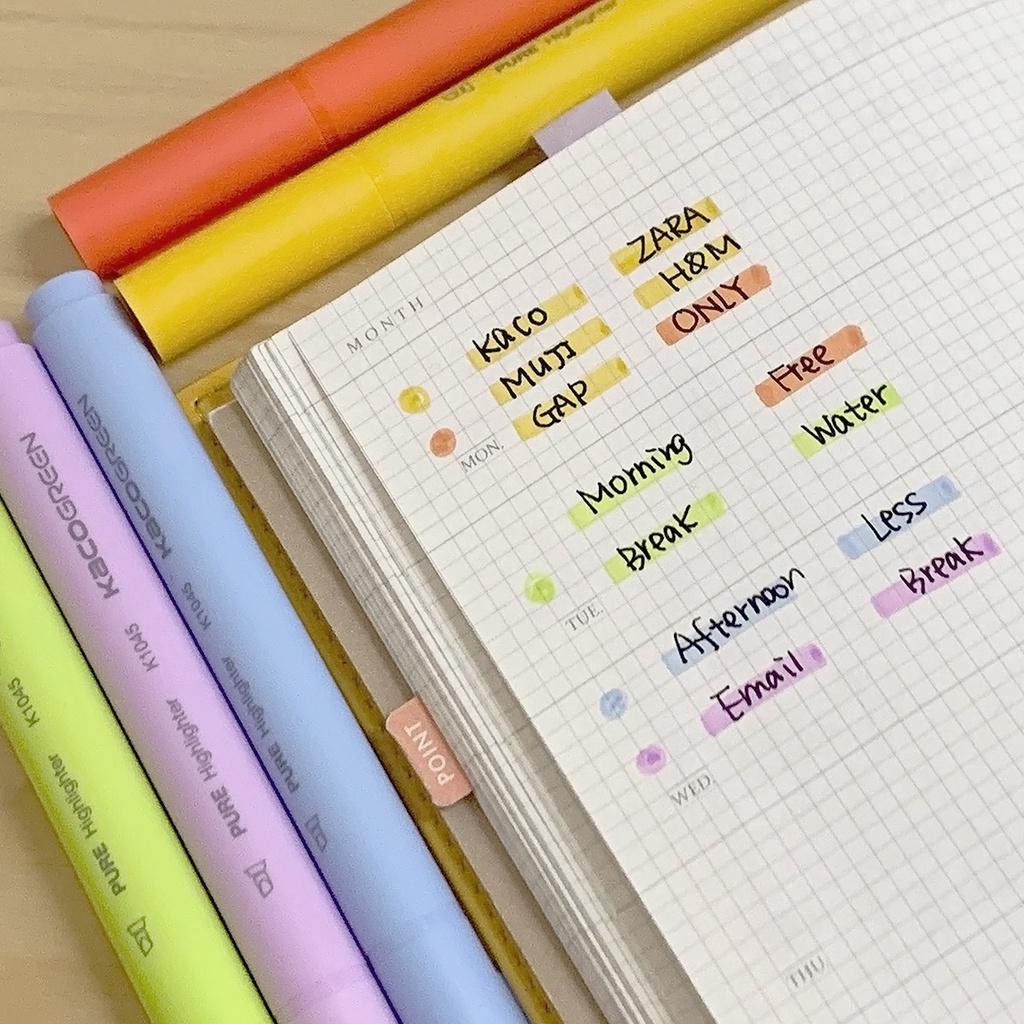 PURE Highlighter
MONTH
Kaco ZARA
MUJI H&M
GAP ONLY
MON.
Morning Free
Break Water
TUE.
Afternoon Less
Email Break
WED.
THU.
POINT
KACOGREEN K1045 PURE Highlighter
KACOGREEN K1045 PURE Highlighter
K1045 PURE Highlighter